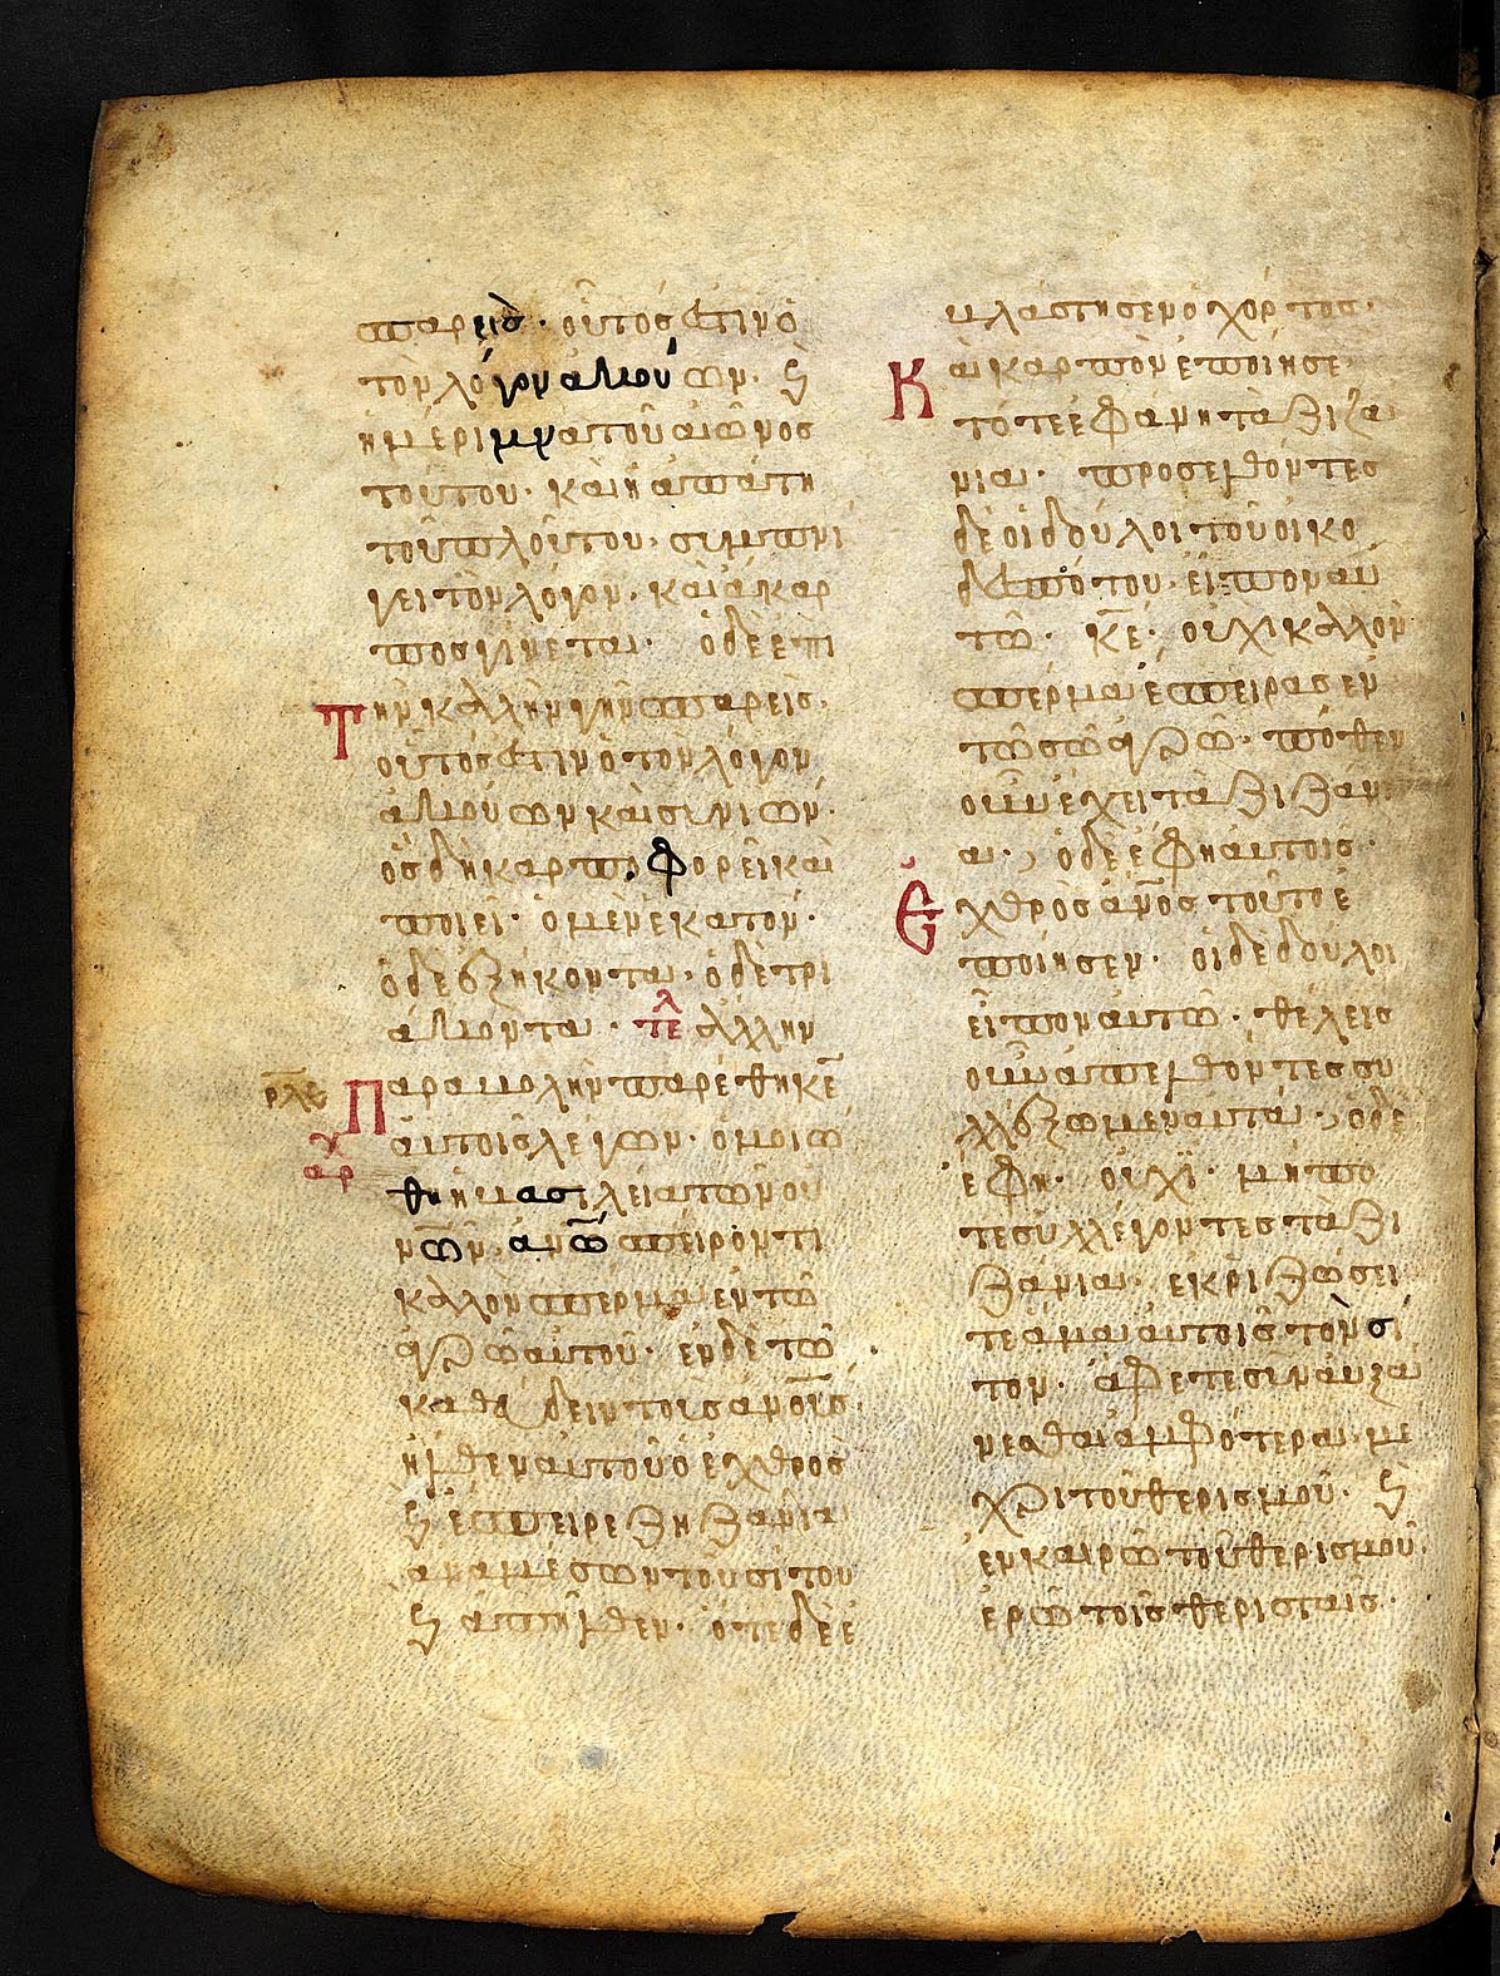 σπαρεὶς· οὗτός ἐστιν ὁ
τὸν λόγον ἀκούων· ϗ
ἡ μέριμνα τοῦ αἰῶνος
τούτου· καὶ ἡ ἀπάτη
τοῦ πλούτου· συμπνί
γει τὸν λόγον· καὶ ἄκαρ
πος γίνεται· ὁ δὲ ἐπὶ
Τὴν καλλὴν γῆν σπαρεὶς·
οὗτός ἐστιν ὁ τὸν λόγον
ἀκούων καὶ συνιῶν·
ὃς δὴ καρποφορεῖ καὶ
ποιεῖ· ὁ μὲν ἑκατόν·
ὁ δὲ ἑξήκοντα· ὁ δὲ τρι
άκοντα· τελ ἄλλην
ρλε Παραβολὴν παρέθηκε̄
αὐτοῖς λέγων· ὁμοιώ
αρχ
θη ἡ βασιλεία τῶν οὐ
νω̅ν· ἀνω̅ σπείροντι
καλλὸν σπέρμα ἐν τῶ
ἀγρῶ αὐτοῦ· ἐν δὲ τῶ
καθεύδειν τοὺς ἀνο̅υς·
ἦλθεν αὐτοῦ ὁ ἐχθρὸς
ϗ ἔσπειρε ζηζάνια
ἀναμέσων τοῦ σίτου
ϗ ἀπῆλθεν· ὅτε δὲ ἐ
βλάστησεν ὁ χόρτος·
Καὶ καρπὸν ἐποίησε·
τότε ἐφάνη τὰ ζιζά
νια· προσελθόντες
δὲ οἱ δοῦλοι τοῦ οἰκο
δεσπότου· εἶπον αὐ
τῶ· κ̅ε· οὐχὶ καλλὸν
σπέρμα ἔσπειρας ἐν
τῶ σῶ ἀγρῶ· πόθεν
οὖν ἔχει τὰ ζιζάνι
α·, ὁ δὲ ἔφη αὐτοῖς·
Ἐχθρὸς ἀν̅ος τοῦτο ἐ
ποίησεν· οἱ δὲ δοῦλοι
εἶπον αὐτῶ· θέλεις
οὖν ἀπελθόντες συ
λλέξωμεν αὐτά·, ὁ δὲ
ἔφη· οὐχΐ· μήπο
τε συλλέγοντες τὰ ζι
ζάνια· εκριζώσει
τε ἅμα αὐτοῖς τὸν σί
τον· ἄφετε συναυξά
νεσθαι ἀμφότερα· μέ
χρι τοῦ θερισμοῦ· ϗ
ἐν καιρῶ τοῦ θερισμοῦ·
ἐρῶ τοῖς θερισταῖς·